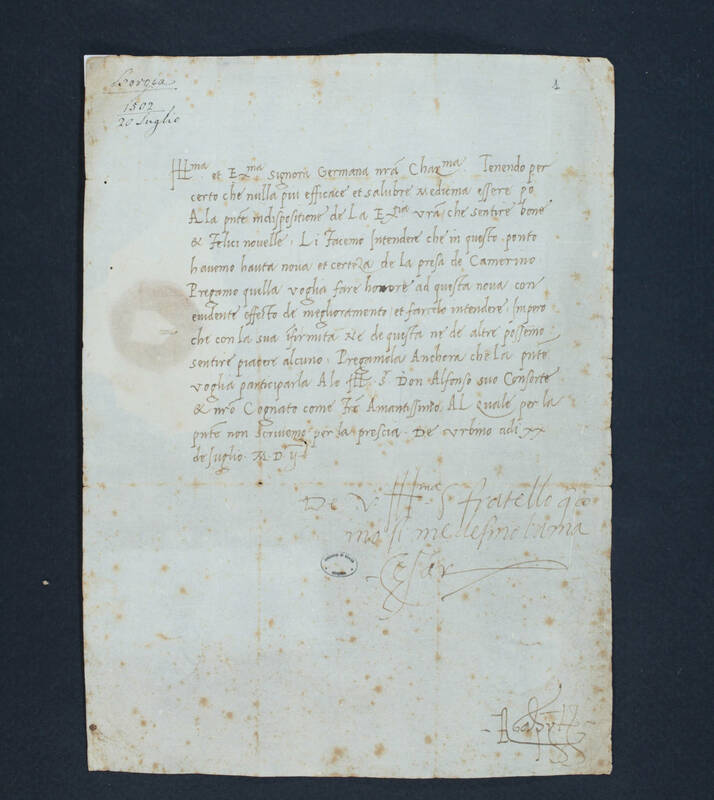 Borgia
1502
20 Luglio
1
Ill.ma et Ex.ma Signora Germana nrã Char.ma Tenendo per
certo che nulla piu efficace et salubre Medicina essere po
A la pnte indispositione de La Ex.tia vrã che sentire bone
& Felici novelle. Li Facemo Intendere che in questo ponto
havemo hauta nova et certeza de la presa de Camerino
Pregamo quella voglia fare honore ad questa nova con
evidente effecto de meglioramento et farcelo intendere. Impero
che con la sua ifirmita Ne de questa ne de altre possemo
sentire piacere alcuno. Pregamola Anchora che La pnte
voglia participarla A lo Ill. S. Don Alfonso suo Consorte
& nrõ Cognato come Frẽ Amantissimo. AL quale per la
pnte non scrivemo per la prescia. De Urbino adi XX
de Luglio. M.D ij
De V. Ill.ma S fratello q̃ co
mo si medesmo la ma
Cesar
Agapytus